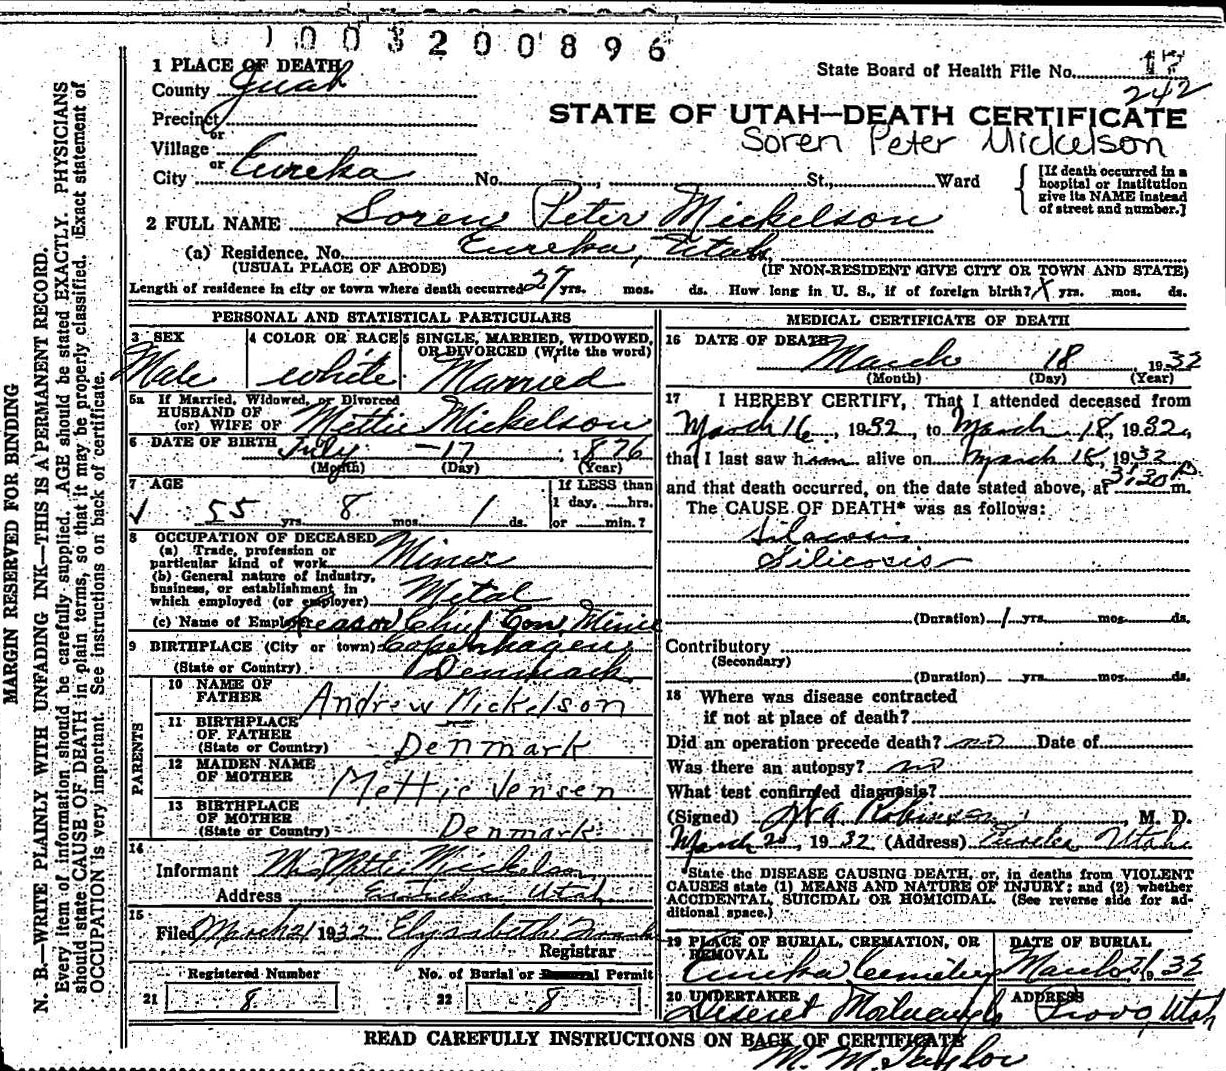 0 1 0 0 3 2 0 0 8 9 6
1 PLACE OF DEATH
County Juab
State Board of Health File No. 17
242
Precinct
or
Village
or
STATE OF UTAH—DEATH CERTIFICATE
Soren Peter Mickelson
City Eureka No. , St., Ward
[If death occurred in a
hospital or institution
give its NAME instead
of street and number.]
2 FULL NAME Soren Peter Mickelson
(a) Residence, No. Eureka, Utah
(USUAL PLACE OF ABODE) (IF NON-RESIDENT GIVE CITY OR TOWN AND STATE)
Length of residence in city or town where death occurred 27 yrs. mos. ds. How long in U. S., if of foreign birth? X yrs. mos. ds.
PERSONAL AND STATISTICAL PARTICULARS
3 SEX
Male
4 COLOR OR RACE
white
5 SINGLE, MARRIED, WIDOWED,
OR DIVORCED (Write the word)
Married
5a If Married, Widowed, or Divorced
HUSBAND OF
(or) WIFE OF Mettie Mickelson
6 DATE OF BIRTH July — 17 , 1876
(Month) (Day) (Year)
7 AGE
55 yrs. 8 mos. 1 ds.
If LESS than
1 day, hrs.
or min.?
8 OCCUPATION OF DECEASED
(a) Trade, profession or
particular kind of work Miner
(b) General nature of industry,
business, or establishment in
which employed (or employer) Metal
(c) Name of Employer Chief Con. Mine
9 BIRTHPLACE (City or town) Copenhagen
(State or Country) Denmark
PARENTS
10 NAME OF
FATHER Andrew Mickelson
11 BIRTHPLACE
OF FATHER
(State or Country) Denmark
12 MAIDEN NAME
OF MOTHER Mettie Jensen
13 BIRTHPLACE
OF MOTHER
(State or Country) Denmark
14
Informant Mrs Mettie Mickelson
Address Eureka Utah
15
Filed March 21 1932 Elysabeth
Registrar
Registered Number
21 8
No. of Burial or Removal Permit
22 8
MEDICAL CERTIFICATE OF DEATH
16 DATE OF DEATH
March 18 1932
(Month) (Day) (Year)
17 I HEREBY CERTIFY, That I attended deceased from
March 16, 1932, to March 18, 1932,
that I last saw him alive on March 18, 1932
and that death occurred, on the date stated above, at 3:30 P. m.
The CAUSE OF DEATH* was as follows:
Silacosis
Silicosis
(Duration) 1 yrs. mos. ds.
Contributory
(Secondary)
(Duration) yrs. mos. ds.
18 Where was disease contracted
if not at place of death?
Did an operation precede death? no Date of
Was there an autopsy? no
What test confirmed diagnosis?
(Signed) Robinson, M. D.
March 20, 1932 (Address) Eureka Utah
*State the DISEASE CAUSING DEATH, or, in deaths from VIOLENT
CAUSES state (1) MEANS AND NATURE OF INJURY; and (2) whether
ACCIDENTAL, SUICIDAL OR HOMICIDAL. (See reverse side for ad-
ditional space.)
19 PLACE OF BURIAL, CREMATION, OR
REMOVAL
Eureka Cemetery
DATE OF BURIAL
March 21 1932
20 UNDERTAKER
Deseret Mortuary
ADDRESS
Provo, Utah
READ CAREFULLY INSTRUCTIONS ON BACK OF CERTIFICATE
M. M. Taylor
MARGIN RESERVED FOR BINDING
N. B.—WRITE PLAINLY WITH UNFADING INK—THIS IS A PERMANENT RECORD.
Every item of information should be carefully supplied. AGE should be stated EXACTLY. PHYSICIANS
should state CAUSE OF DEATH in plain terms, so that it may be properly classified. Exact statement of
OCCUPATION is very important. See instructions on back of certificate.